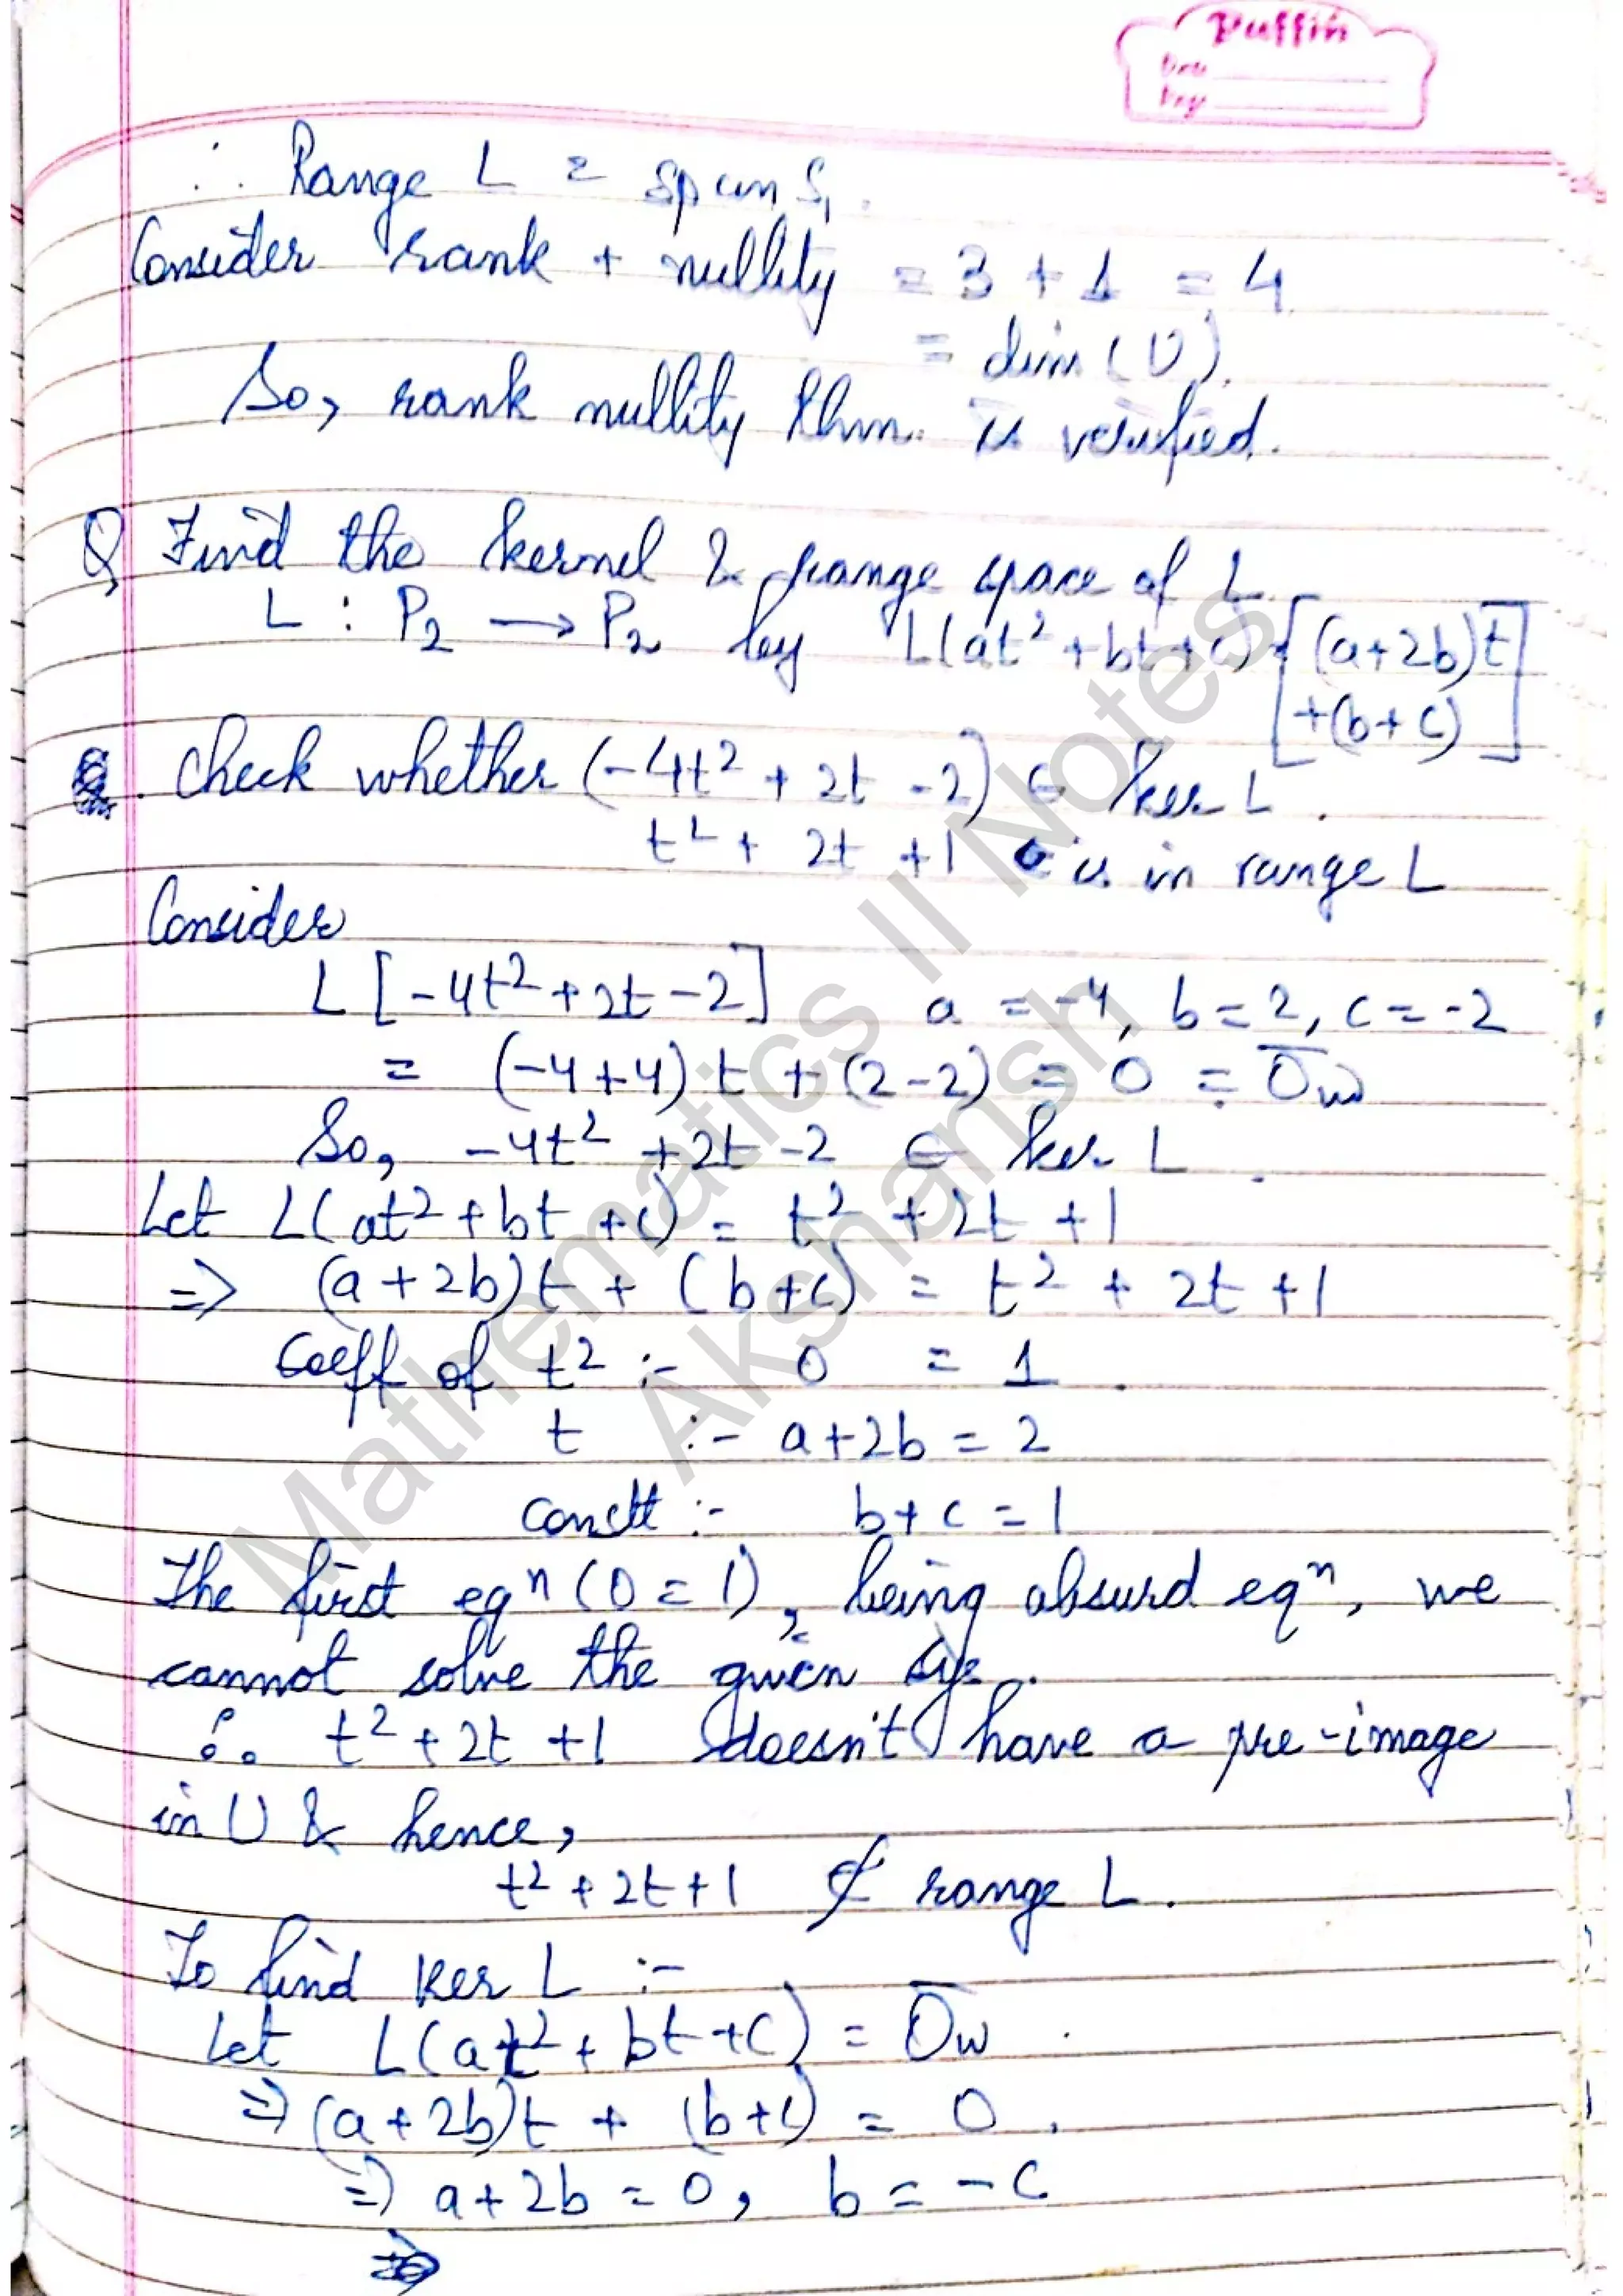 Puffin
Date
Page
∴ Range L = span S₁.
Consider rank + nullity = 3 + 1 = 4
= dim (U).
So, rank nullity thm. is verified.
Q Find the kernel & range space of L.
L : P₂ → P₂ by L(at² + bt + c) = [(a+2b)t
+(b+c)]
. Check whether (-4t² + 2t - 2) ∈ ker L .
t² + 2t + 1 is in range L
Consider
L [-4t² + 2t - 2] a = -4, b = 2, c = -2
= (-4+4) t + (2-2) = 0 = 0̄w
So, -4t² + 2t - 2 ∈ ker L .
Let L(at² + bt + c) = t² + 2t + 1
⇒ (a + 2b)t + (b+c) = t² + 2t + 1
Coeff of t² :- 0 = 1 .
t :- a+2b = 2
constt :- b+c = 1
The first eqⁿ (0 = 1), being absurd eqⁿ, we
cannot solve the given sys.
∴ t² + 2t + 1 doesn't have a pre-image
in U & hence,
t² + 2t + 1 ∉ range L .
To find Ker L :-
Let L(at² + bt + c) = 0̄w .
⇒ (a + 2b)t + (b+c) = 0 .
⇒ a + 2b = 0, b = -c
⇒
Mathematics II Notes
Akshansh